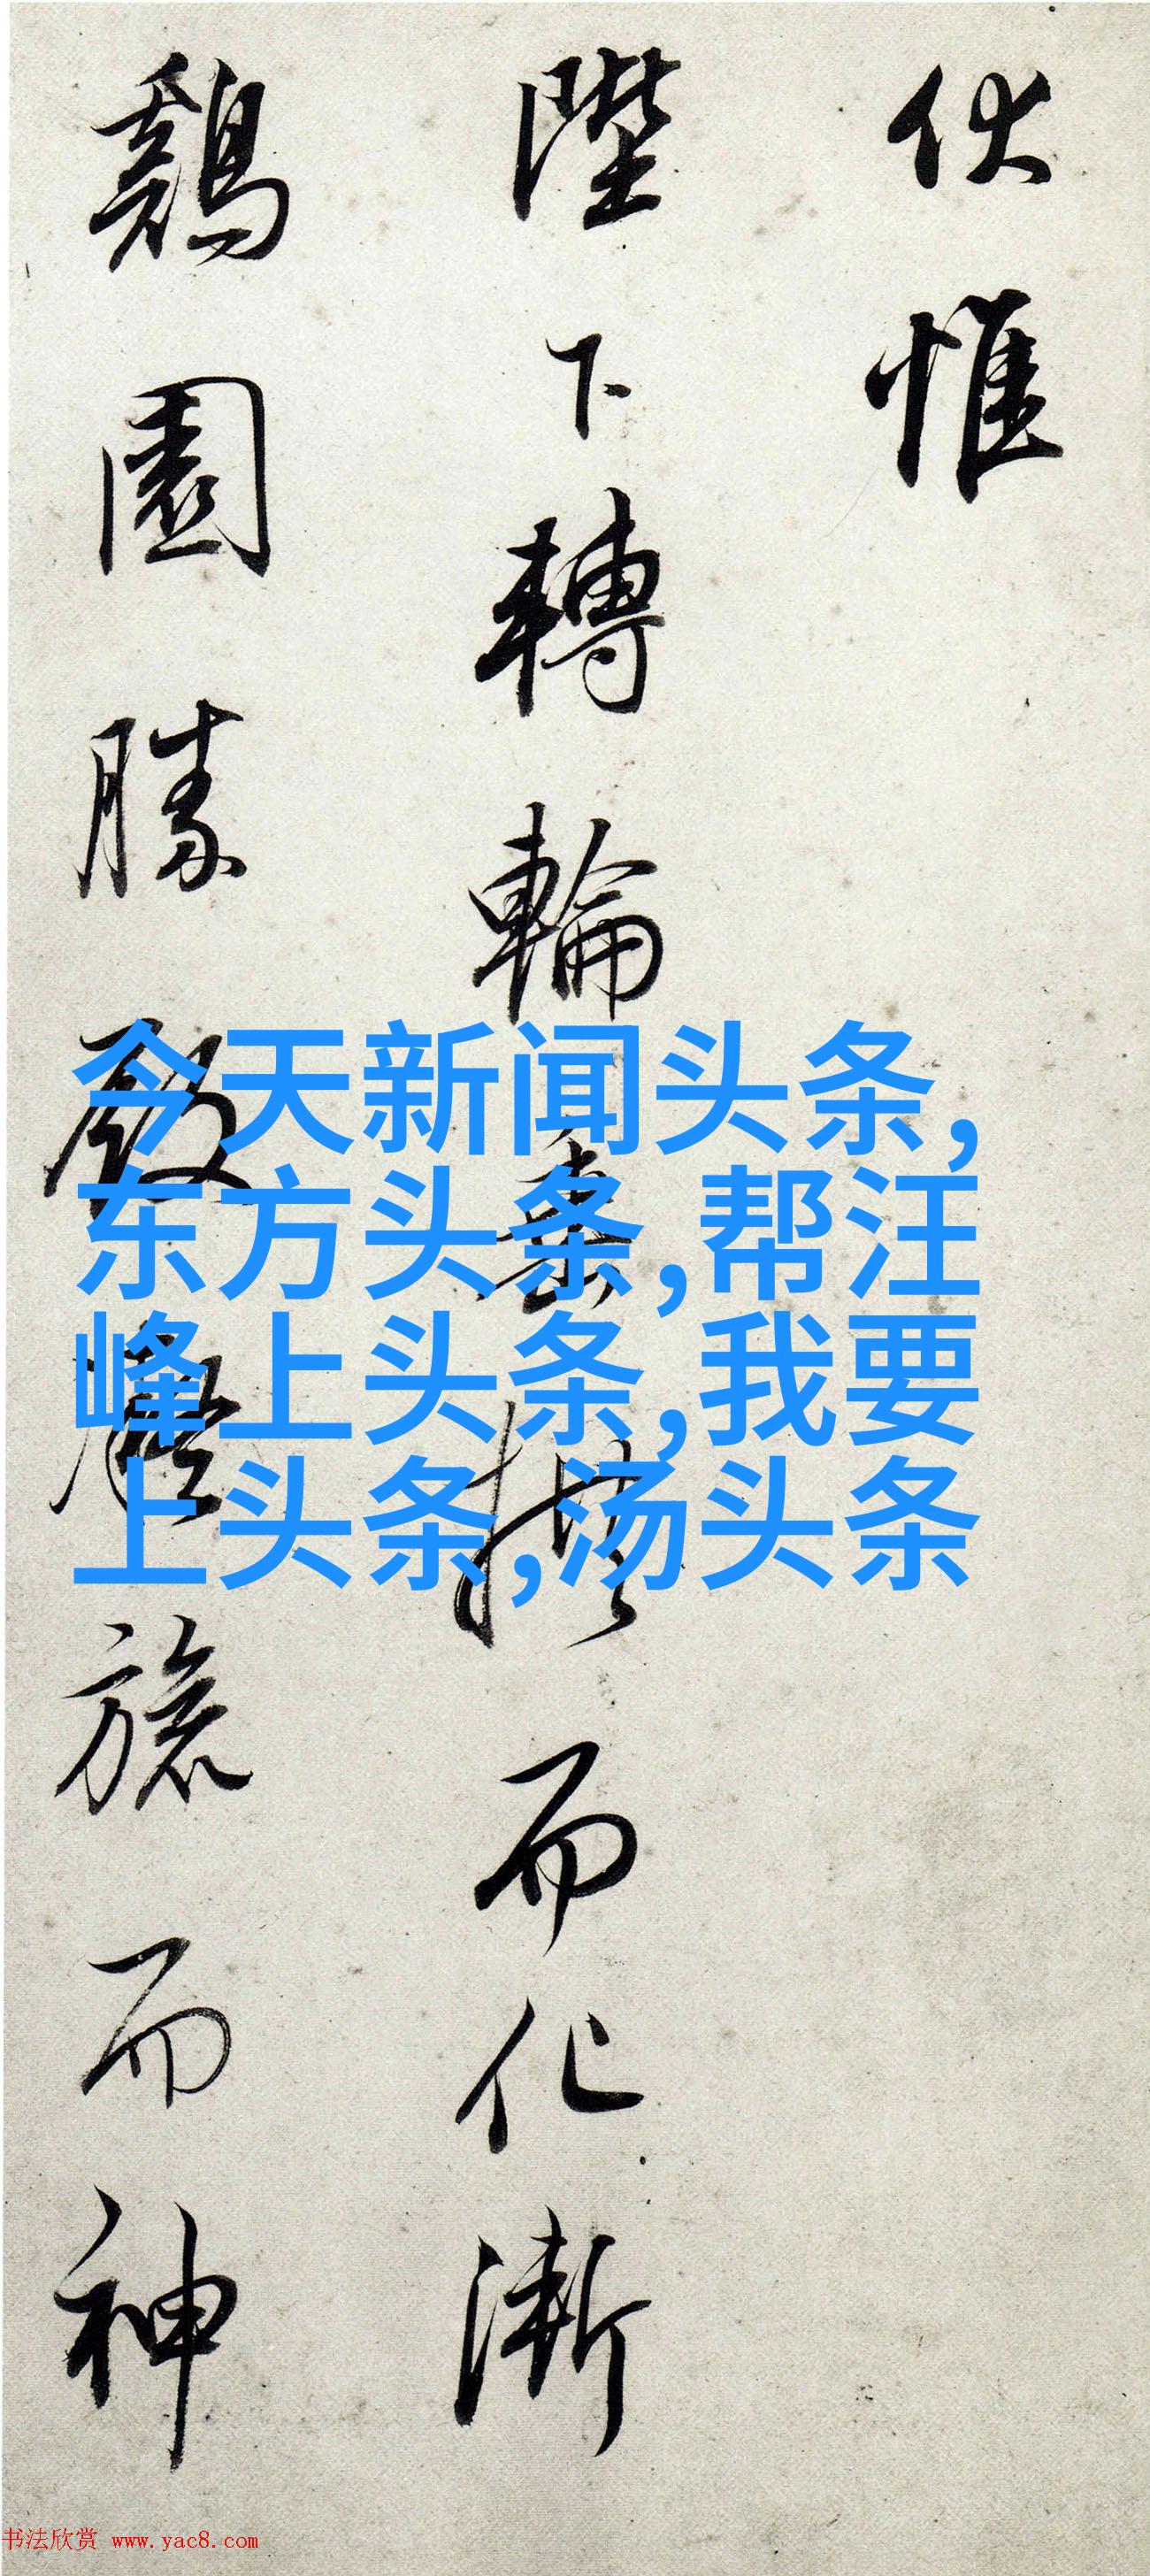 伏惟
陛下轉輪垂拱而化漸
鷄園勝殿凝旒而神
今天新闻头条,
东方头条,帮汪
峰上头条,我要
上头条,汤头条
书法欣赏 www.yac8.com